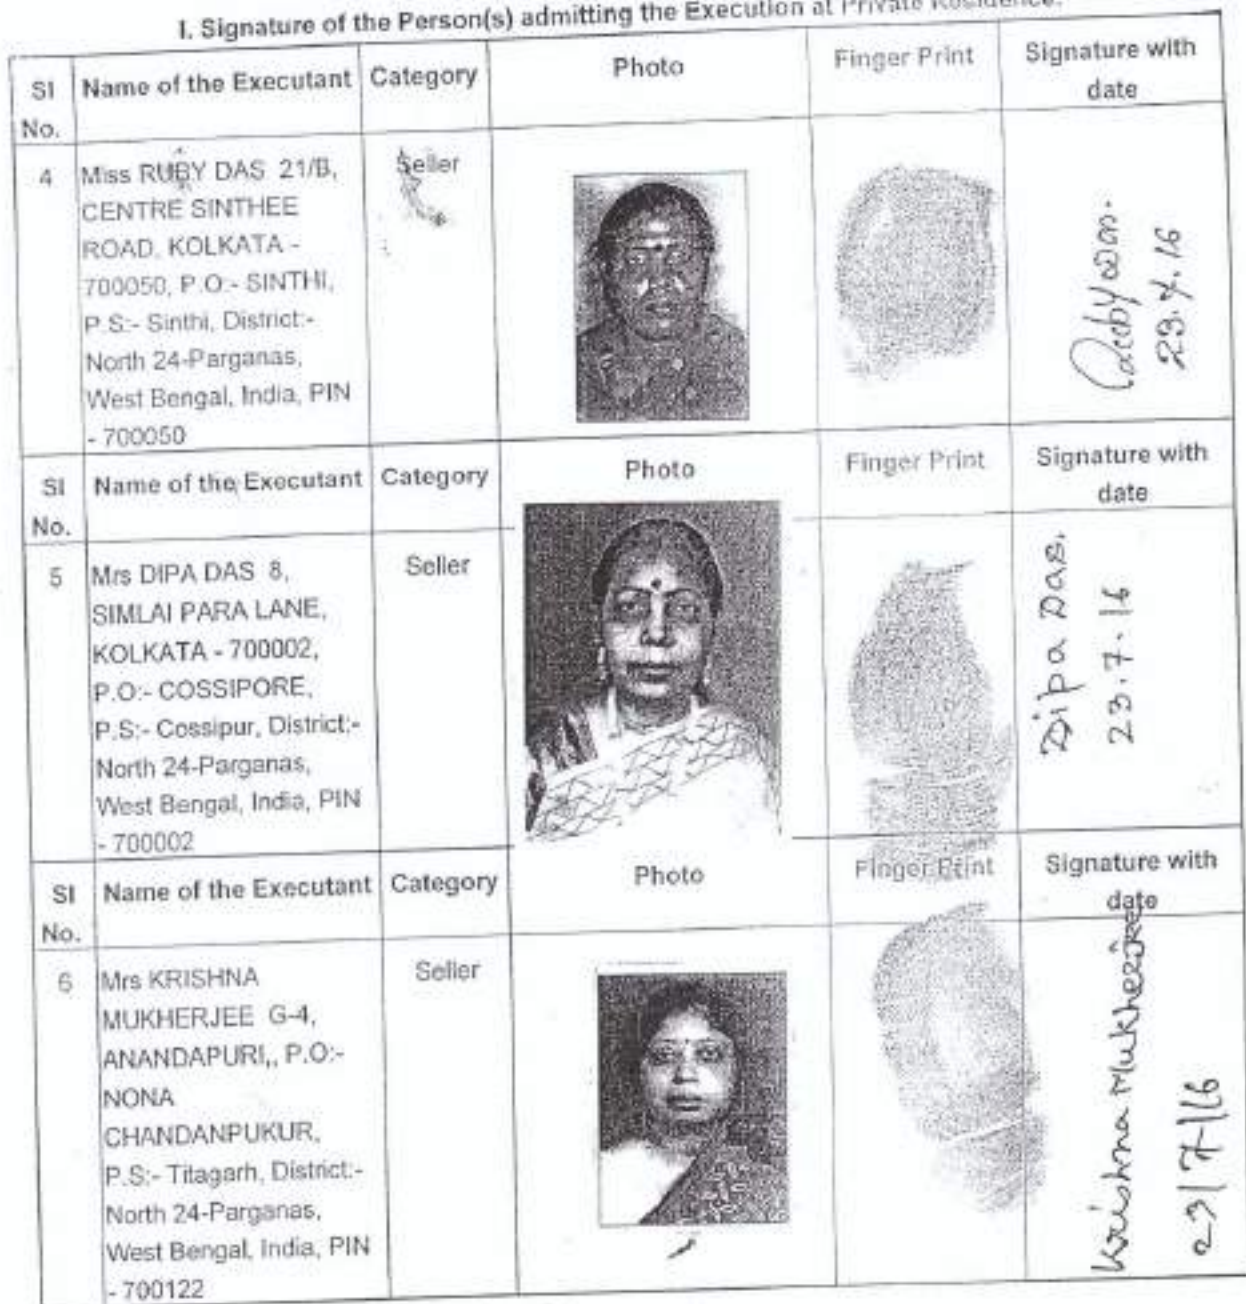 I. Signature of the Person(s) admitting the Execution at Private Residence.
Sl No. Name of the Executant Category Photo Finger Print Signature with date
4 Miss RUBY DAS 21/B, Seller
CENTRE SINTHEE
ROAD, KOLKATA -
700050, P.O:- SINTHI,
P.S:- Sinthi, District:-
North 24-Parganas,
West Bengal, India, PIN
- 700050
Ruby Das.
23.7.16
Sl No. Name of the Executant Category Photo Finger Print Signature with date
5 Mrs DIPA DAS 8, Seller
SIMLAI PARA LANE,
KOLKATA - 700002,
P.O:- COSSIPORE,
P.S:- Cossipur, District:-
North 24-Parganas,
West Bengal, India, PIN
- 700002
Dipa Das.
23.7.16
Sl No. Name of the Executant Category Photo Finger Print Signature with date
6 Mrs KRISHNA Seller
MUKHERJEE G-4,
ANANDAPURI,, P.O:-
NONA
CHANDANPUKUR,
P.S:- Titagarh, District:-
North 24-Parganas,
West Bengal, India, PIN
- 700122
Krishna Mukherjee
23/7/16